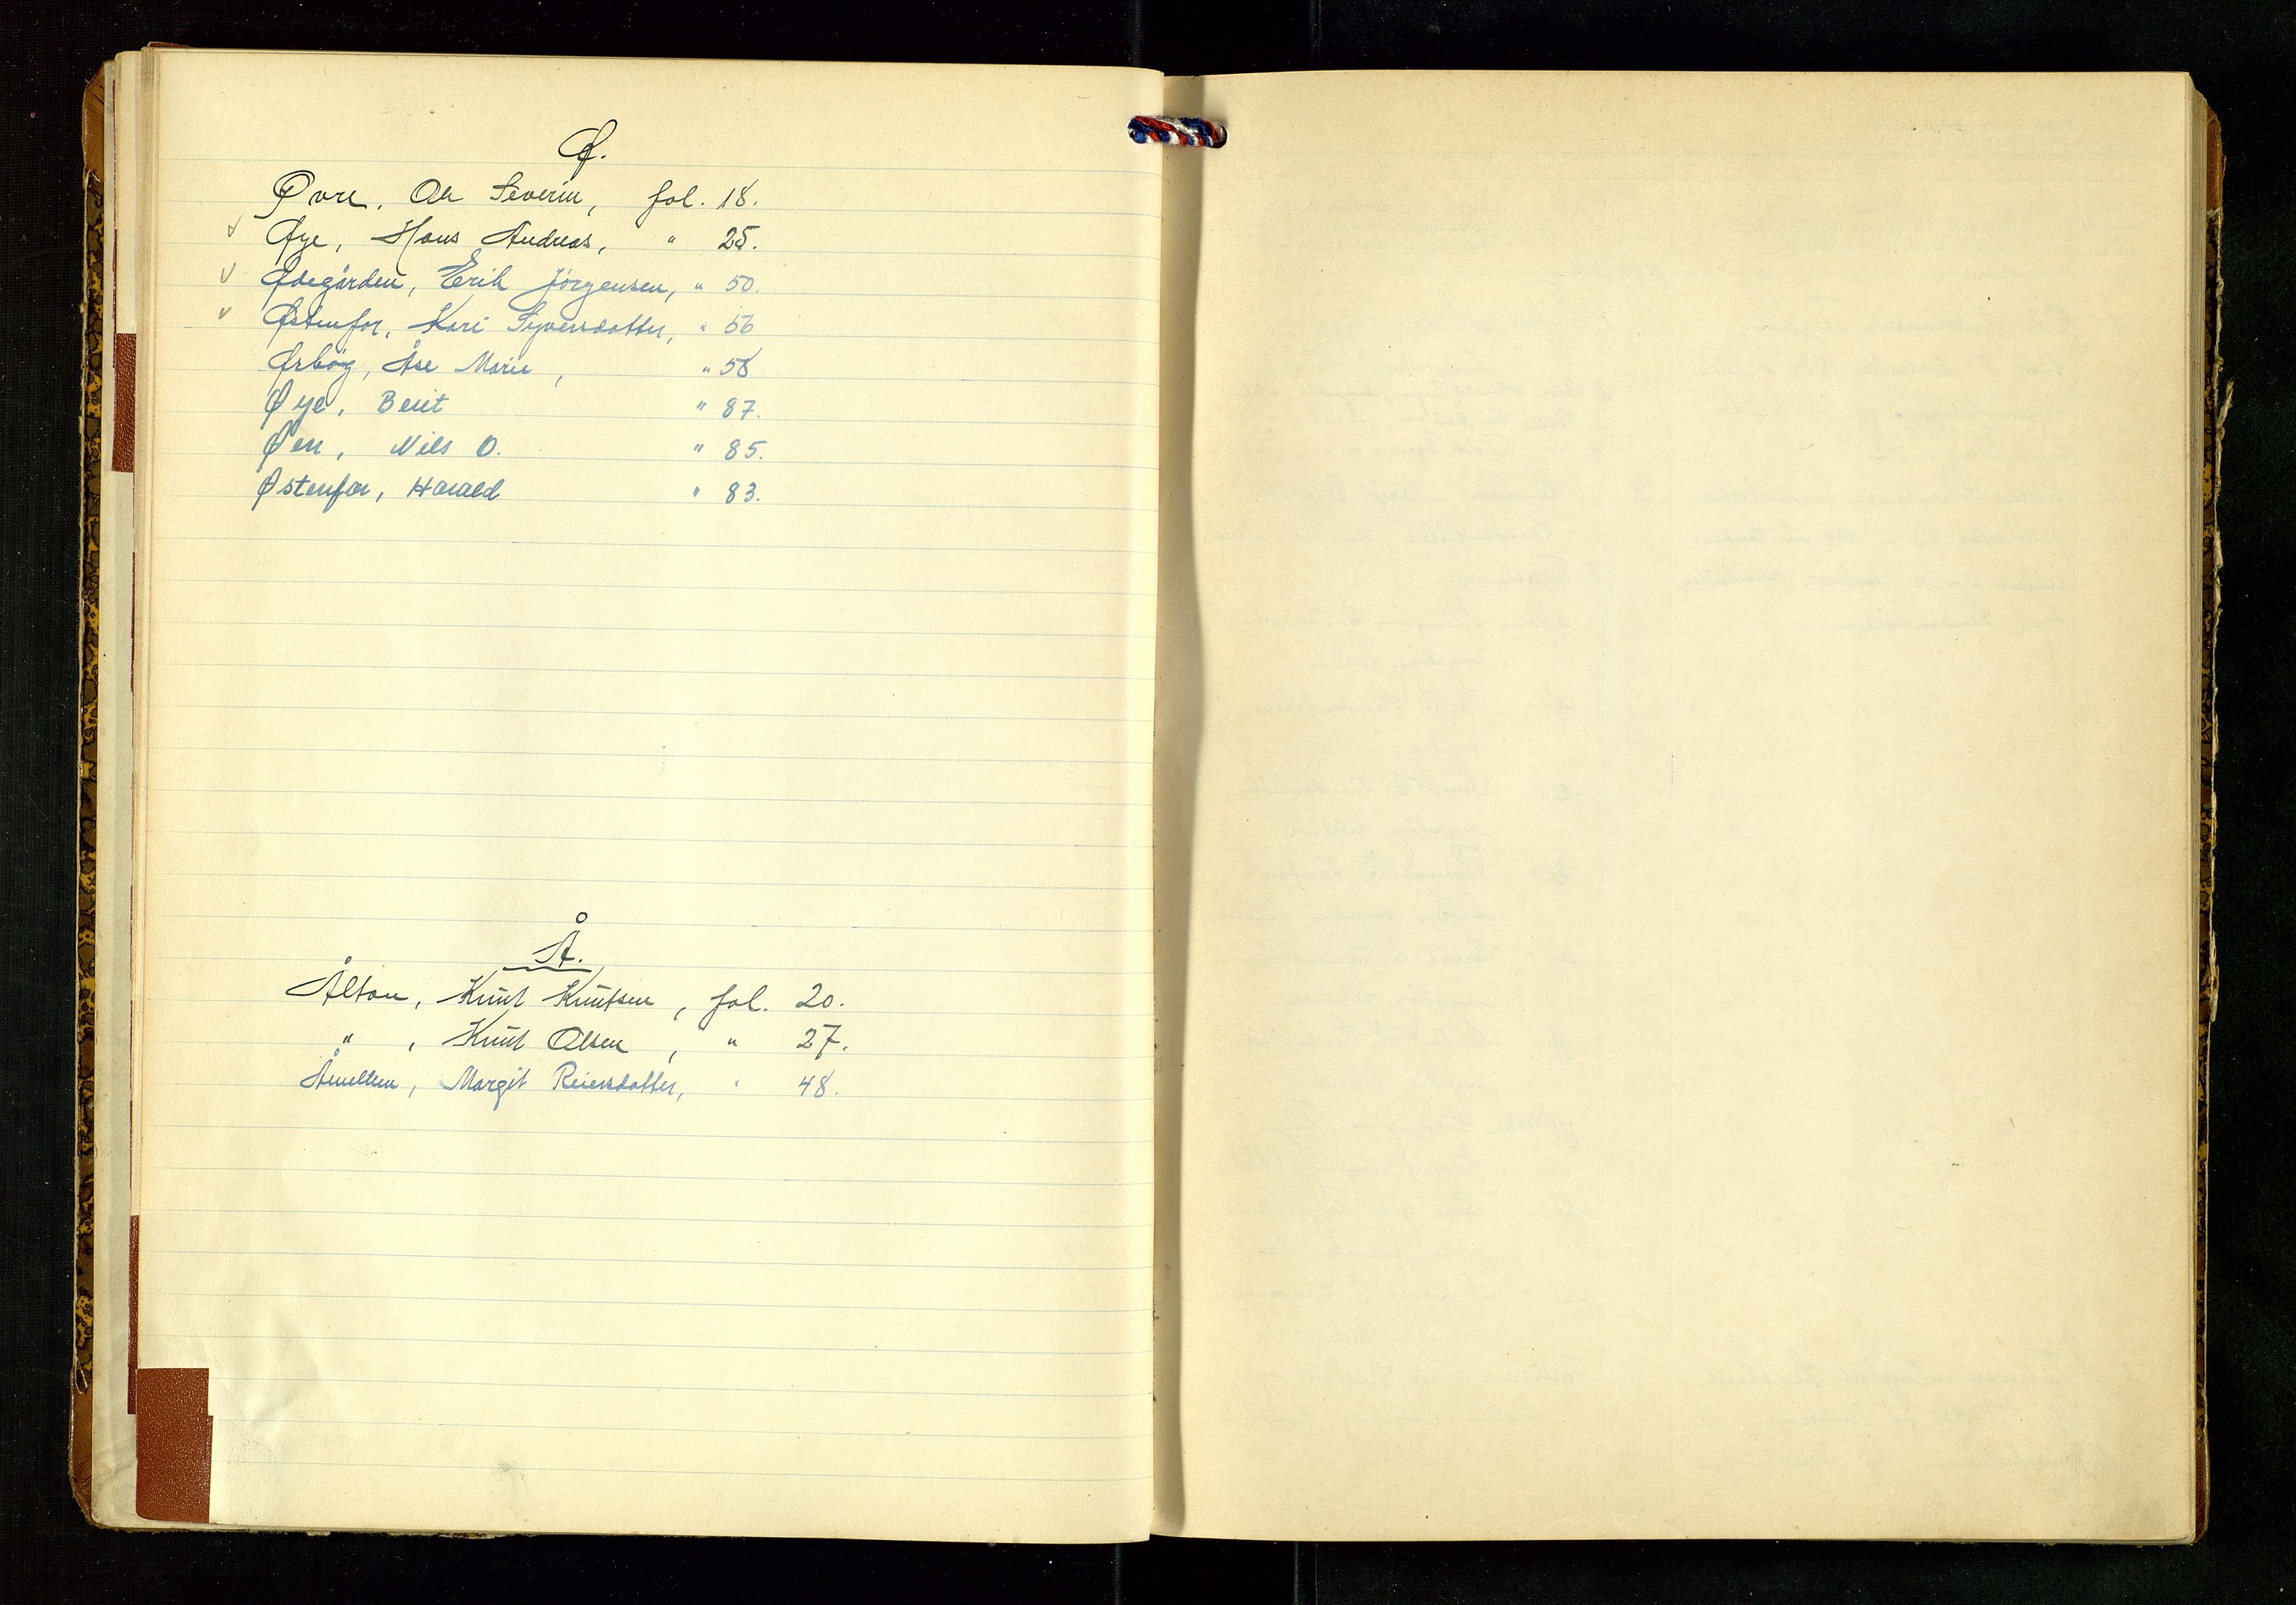 Ø.
Øvre, Ole Severin, fol. 18.
✓ Øye, Hans Andreas, " 25.
✓ Ødegården, Erik Jörgensen, " 50.
✓ Østenfor, Kari Syversdotter, " 56
Ørbög, Åse Marie, " 58
Øye, Berit " 87.
Øen, Nils O. " 85.
Østenfor, Harald " 83.
Å.
Ålton, Knut Knutsen, fol. 20.
" , Knut Olsen, " 27.
Margit Reiersdotter, " 48.